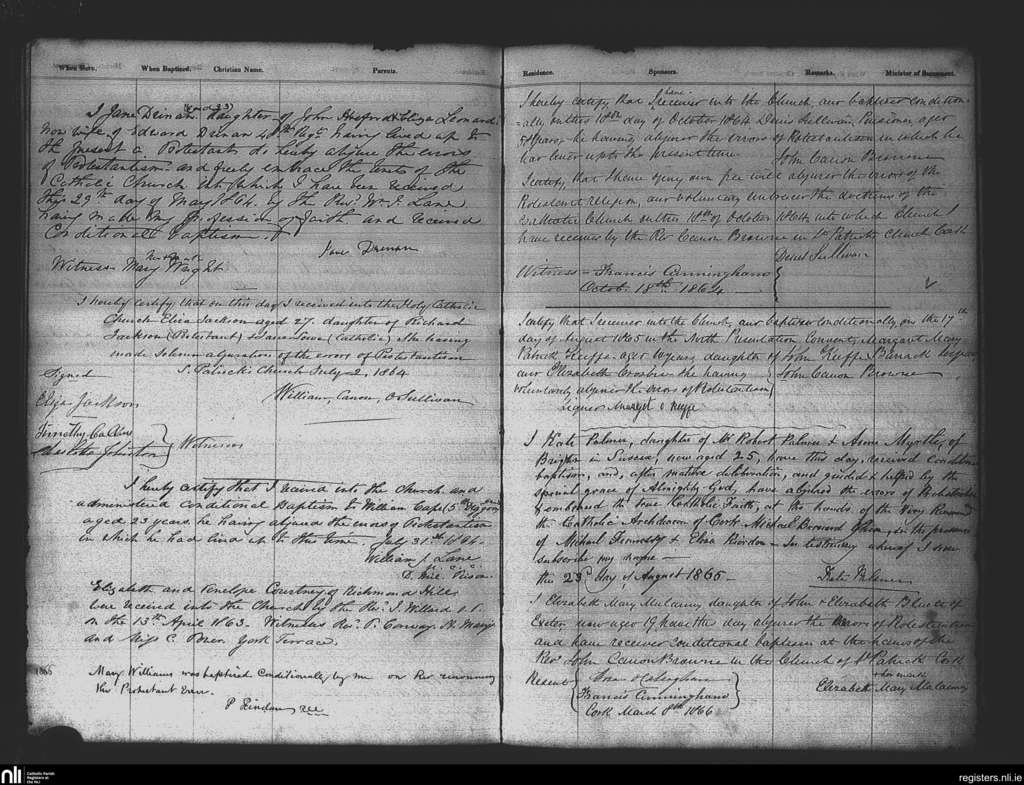 When Born. When Baptized. Christian Name. Parents.
(aged 23)
I Jane Dinan daughter of John & Eliza Leonard
now wife of Edward Dinan 4th Regt having lived up to
the present a Protestant do hereby abjure the errors
of Protestantism and freely embrace the tenets of the
Catholic Church into which I have been received
this 29th day of May 1864 by the Revd Wm J. Lane
having made my profession of faith and received
Conditional baptism.
Jane Dinan
Witness Mary Wright
I hereby certify, that on this day I received into the Holy Catholic
Church Eliza Jackson aged 27. daughter of Richard
Jackson (Protestant) & Jane (Catholic) She having
made Solemn abjuration of the errors of Protestantism
S. Patrick's Church July 2, 1864
Signed
William, Canon, O'Sullivan
Eliza Jackson
Timothy
Johnston } Witnesses
I hereby certify that I received into the Church and
administered Conditional Baptism to William Cape
aged 23 years he having abjured the errors of Protestantism
in which he had lived up to this time. July 31st 1864.
William J. Lane
Elizabeth and Penelope Courtney of Richmond Hill
were received into the Church by the Revd J. Willard
on the 13th April 1863. Witnesses Revd P. Conway
and Miss C. Bren York Terrace.
1865
Mary Williams was baptised Conditionally by me on her renouncing
the Protestant
P
Residence. Sponsors. Remarks. Minister of Sacrament.
I hereby certify that I have received into the Church, and baptized condition-
-ally, on this 18th day of October 1864 Denis Sullivan, Pensioner aged
years, he having abjured the errors of Protestantism in which he
had lived up to the present time. John Canon Browne
I certify, that I have of my own free will abjured the errors of the
Protestant religion, and voluntarily embraced the doctrines of the
Catholic Church on this 18th of October 1864, into which Church I
have received by the Rev Canon Browne in St Patricks Church Cork
Denis Sullivan
Witness = Francis Cunningham }
Octob. 18th 1864
I certify that I received into the Church, and baptized conditionally, on the 17th
day of August 1865 in the North Presentation Convent, Margaret Mary
Patrick Keeffe aged 10 years, daughter of John Keeffe Barrack
and Elizabeth Crosbie she having John Canon Browne
voluntarily abjured the errors of Protestantism
Signed Margt O Keeffe
I Kate Palmer, daughter of Mr Robert Palmer & Anne Myrtle, of
Brighton in Sussex, now aged 25, have this day, received Conditional
baptism, and, after mature deliberation, and guided & helped by the
special grace of Almighty God, have abjured the errors of Protestantism
& embraced the true Catholic Faith, at the hands of the Very Reverend
the Catholic Archdeacon of Cork, Michael Bernard O'Shea, in the presence
of Michael Kennedy & Eliza Riordan - In testimony whereof I now
subscribe my name -
this 23d Day of August 1865 - Kate Palmer
I Elizabeth Mary Mulcanny daughter of John & Elizabeth Bluet of
Exeter now aged 19, have this day abjured the errors of Protestantism
and have received conditional baptism at the hands of the
Revd John Canon Browne in the Church of St Patrick Cork
her mark
Elizabeth Mary Mulcanny
Present { Callaghan
Francis Cunningham }
Cork March 8th 1866
nli
Catholic Parish
Registers at
the NLI
registers.nli.ie